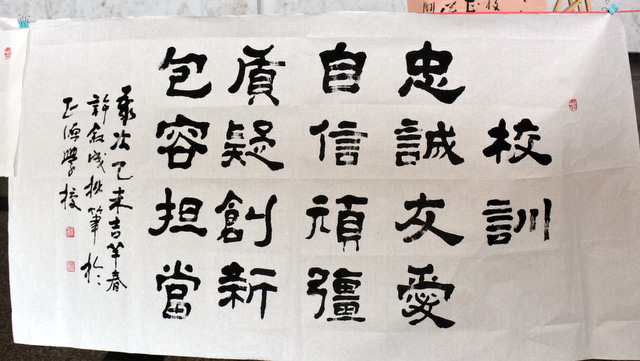 校訓
忠誠友愛
自信頑彊
貭疑創新
包容担當
歲次乙未吉羊春
許叙成執筆於
正源學校